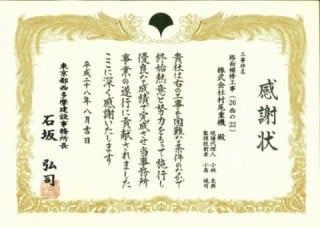 感謝状
工事件名
路面補修工事(26西の22)
株式会社村尾重機 殿
現場代理人 小林 太典
監理技術者 小高 城司
貴社は右の工事を困難な条件のなかで
終始熱意と努力をもって施行し
優良な成績で完成させ当事務所
事業の遂行に貢献されました
ここに深く感謝いたします
平成二十八年八月吉日
東京都西多摩建設事務所長
石坂 弘司